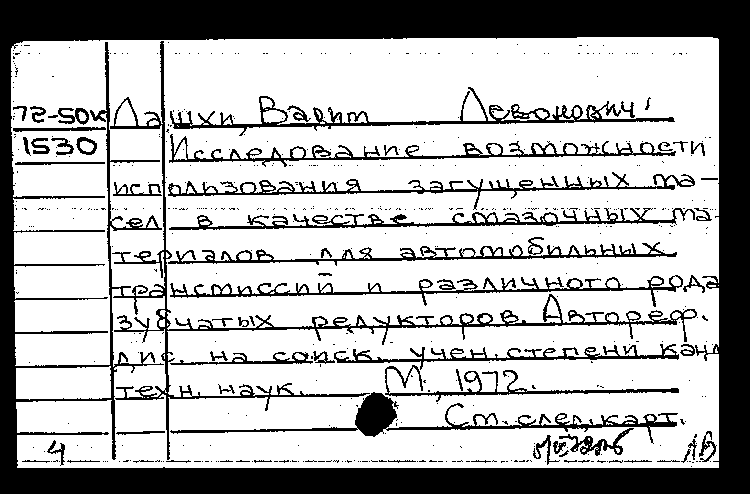 72-50к Лашхи, Вадим Левонович.
1530 Исследование возможности
использования загущенных ма-
сел в качестве смазочных ма-
териалов для автомобильных
трансмиссий и различного рода
зубчатых редукторов. Автореф.
дис. на соиск. учен. степени канд
техн. наук. М., 1972.
См. след. карт.
4 ЛВ